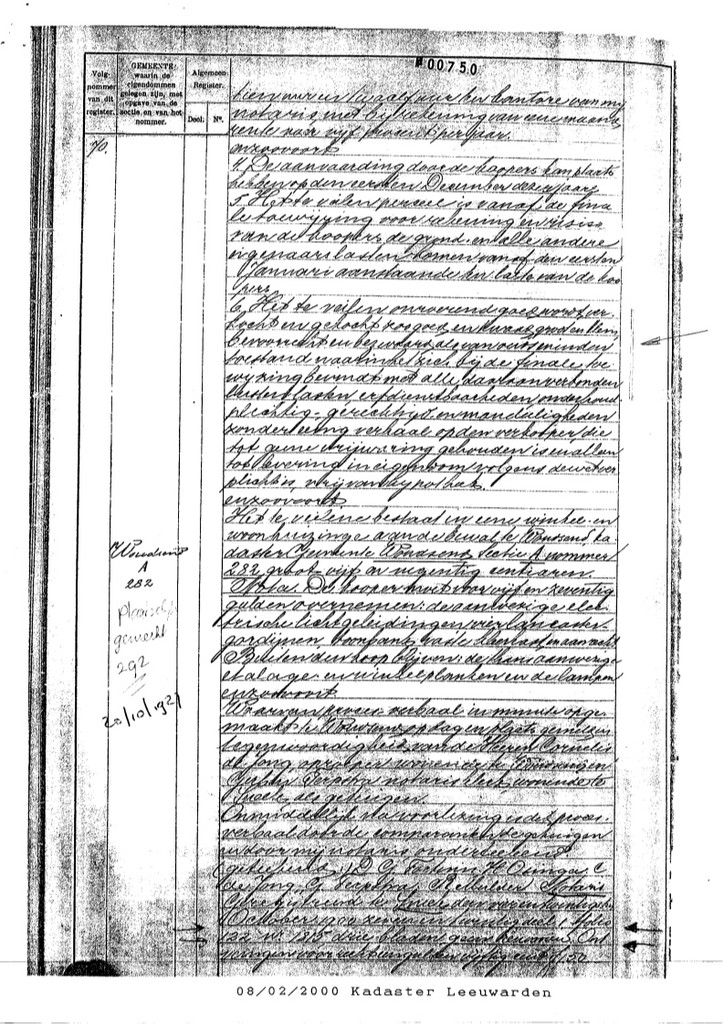 №00750
Volg-
nommer
van dit
register.
GEMEENTE
waarin de
eigendommen
gelegen zijn, met
opgave van de
sectie en van het
nommer.
Algemeen
Register.
Deel.
Nº.
70.
tien uur en twaalf uur ten kantore van mij
notaris, met bijrekening van eene maand
rente naar vijf procent per jaar.
enzoovoort
4. De aanvaarding door de koopers kan plaats
hebben op den eersten December dezes jaars
5. Het te veilen perceel is vanaf de fina
le toewijzing voor rekening en risico
van de koopers, de grond- en alle andere
eigenaarslasten komen vanaf den eersten
Januari aanstaande ten laste van de koo
pers.
6. Het te veilen onroerend goed wordt ver
kocht en gekocht zoo goed en kwaad, groot en klein,
bevoorrecht en bezwaard als van ouds en in den
toestand waarin het zich bij de finale toe
wijzing bevindt met alle daaraan verbonden
lusten, lasten, erfdienstbaarheden, onderhoud
plichtig- gerechtigd en mandeligheden
zonder eenig verhaal op den verkooper die
tot geene vrijwaring gehouden is en alleen
tot levering in eigendom volgens de wet ver
plicht is, vrij van hypotheek.
enzoovoort.
Het te veilene bestaat in eene winkel- en
woonhuizinge aan de Ewal te Woudsend, ka
daster Gemeente Woudsend sectie A nommer
282 groot vijf en negentig centiaren.
Nota. De kooper moet voor vijf en zeventig
gulden overnemen: de aanwezige elec
trische lichtgeleidingen, vier lancaster-
gordijnen,
Buiten den koop blijven: de thans aanwezige
etalage- en winkelplanken en de lampen
enzoovoort
Waarvan proces-verbaal in minute opge
maakt te Woudsend op dag en plaats gemeld in
tegenwoordigheid van de Heeren Cornelis
de Jong, wonende te
Terpstra, notarisklerk, wonende te
Sneek, als getuigen.
Onmiddellijk na voorlezing is dit proces-
verbaal door de comparanten, de getuigen
en door mij notaris onderteekend.
(geteekend) D. G. H. Osinga, C.
de Jong, G. Terpstra, B. Mulder Notaris
Geregistreerd te Sneek den
October 1900 zeven en twintig deel folio
122 nr 1815 drie bladen geen renvooien. Ont
vangen voor recht gulden vijftig cent
Woudsend
A
282
gemerkt
292
20/10/1921
08/02/2000 Kadaster Leeuwarden